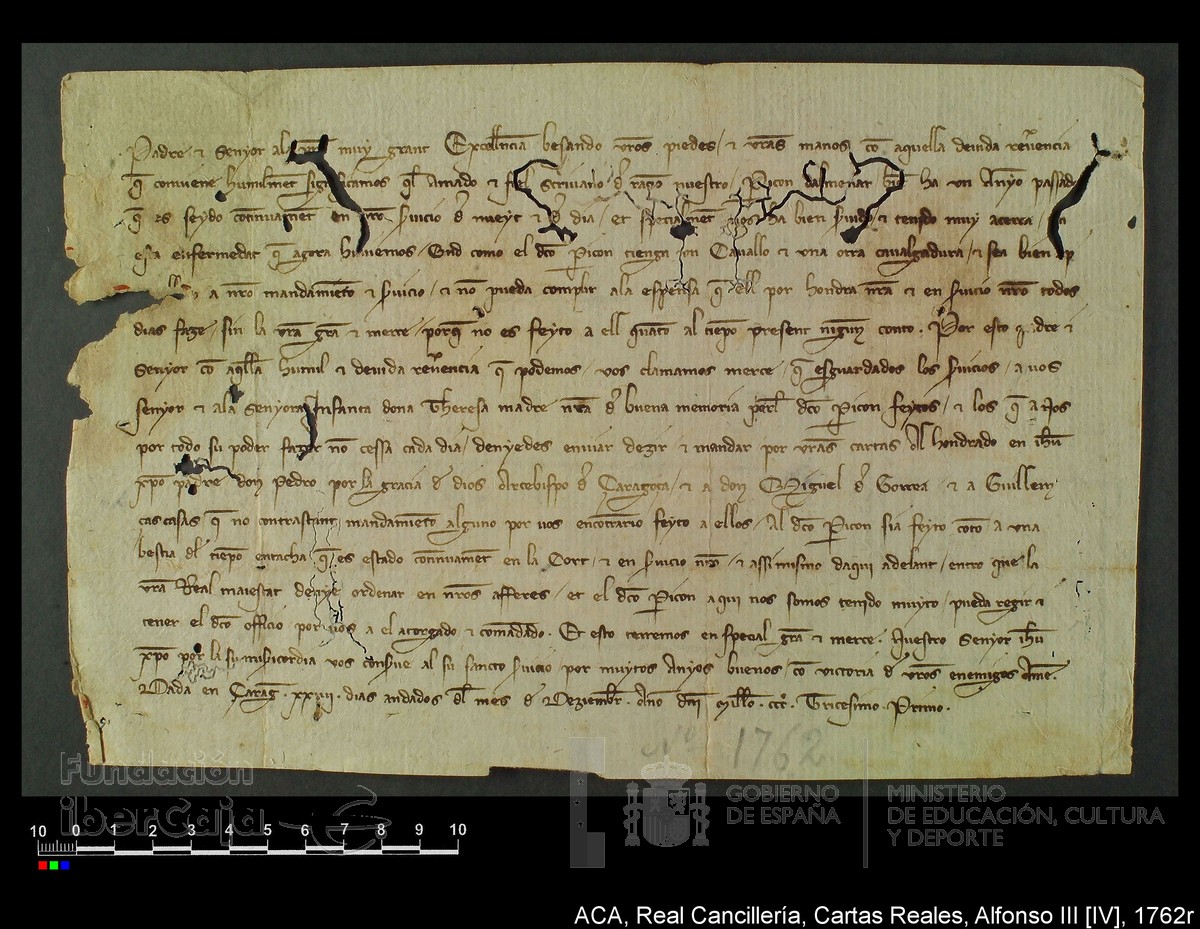 Padre & Senyor al vra muy grant Excellencia besando vros piedes / & vras manos co aquella deuida reuerencia
q conuiene humilmet significamos q l Amado & fiel scriuano d racio nuestro / Picon dalmenar ha vn Anyo passado
q es seydo continuamet en vro seruicio d nueyt & d dia / et specialmet nos ha bien seruido & tenido muy acerca
esta enfermedat q agora huuiemos / Ond como el dco Picon tienga vn Cauallo & vna otra caualgadura / & sea bien
a nro mandamieto & seruicio / & no pueda complir ala espensa q ell por hondra nra & en seruicio nro todos
dias faze / sin la vra gra & merce / porq no es feyto a ell quato al tiepo present nigun conto. Por esto padre &
Senyor co aqlla humil & deuida reuerencia q podemos / vos clamamos merce / q esguardados los seruicios / a uos
senyor & ala senyora Infanta dona Theresa madre nra d buena memoria perl dco Picon feytos / & los q a Nos
por todo su poder fazer no cessa cada dia / denyedes enuiar dezir & mandar por vras cartas Al hondrado en ihu
xpo padre don Pedro por la gracia d dios Arcebispo d Caragoça / & a don Miguel d Gorrea & a Guillem
cascasas q no contrastant mandamieto alguno por uos encotrario feyto a ellos / Al dco Picon sia feyto coto a vna
bestia dl tiepo encacha q es estado continuamet en la Cort / & en seruicio nro / & assimismo daqui adelant / entro que la
vra Real maiestat denye ordenar en nros afferes / et el dco Picon a qui nos somos tenido muyto / pueda regir &
tener el dco officio por uos a el atorgado & comadado. Et esto tenremos en special gra & merce. Nuestro Senyor ihu
xpo por la su misericordia vos conserue al su sancto seruicio por muytos Anyos buenos / co victoria d vros enemigos Ame.
Dada en Çarag. xxviij. dias andados dl mes d Deziembr. Ano dni Millo. ccc. Tricesimo. Primo.
Nº 1762
Fundación
iberCaja
GOBIERNO
DE ESPAÑA
MINISTERIO
DE EDUCACIÓN, CULTURA
Y DEPORTE
10 0 1 2 3 4 5 6 7 8 9 10
ACA, Real Cancillería, Cartas Reales, Alfonso III [IV], 1762r